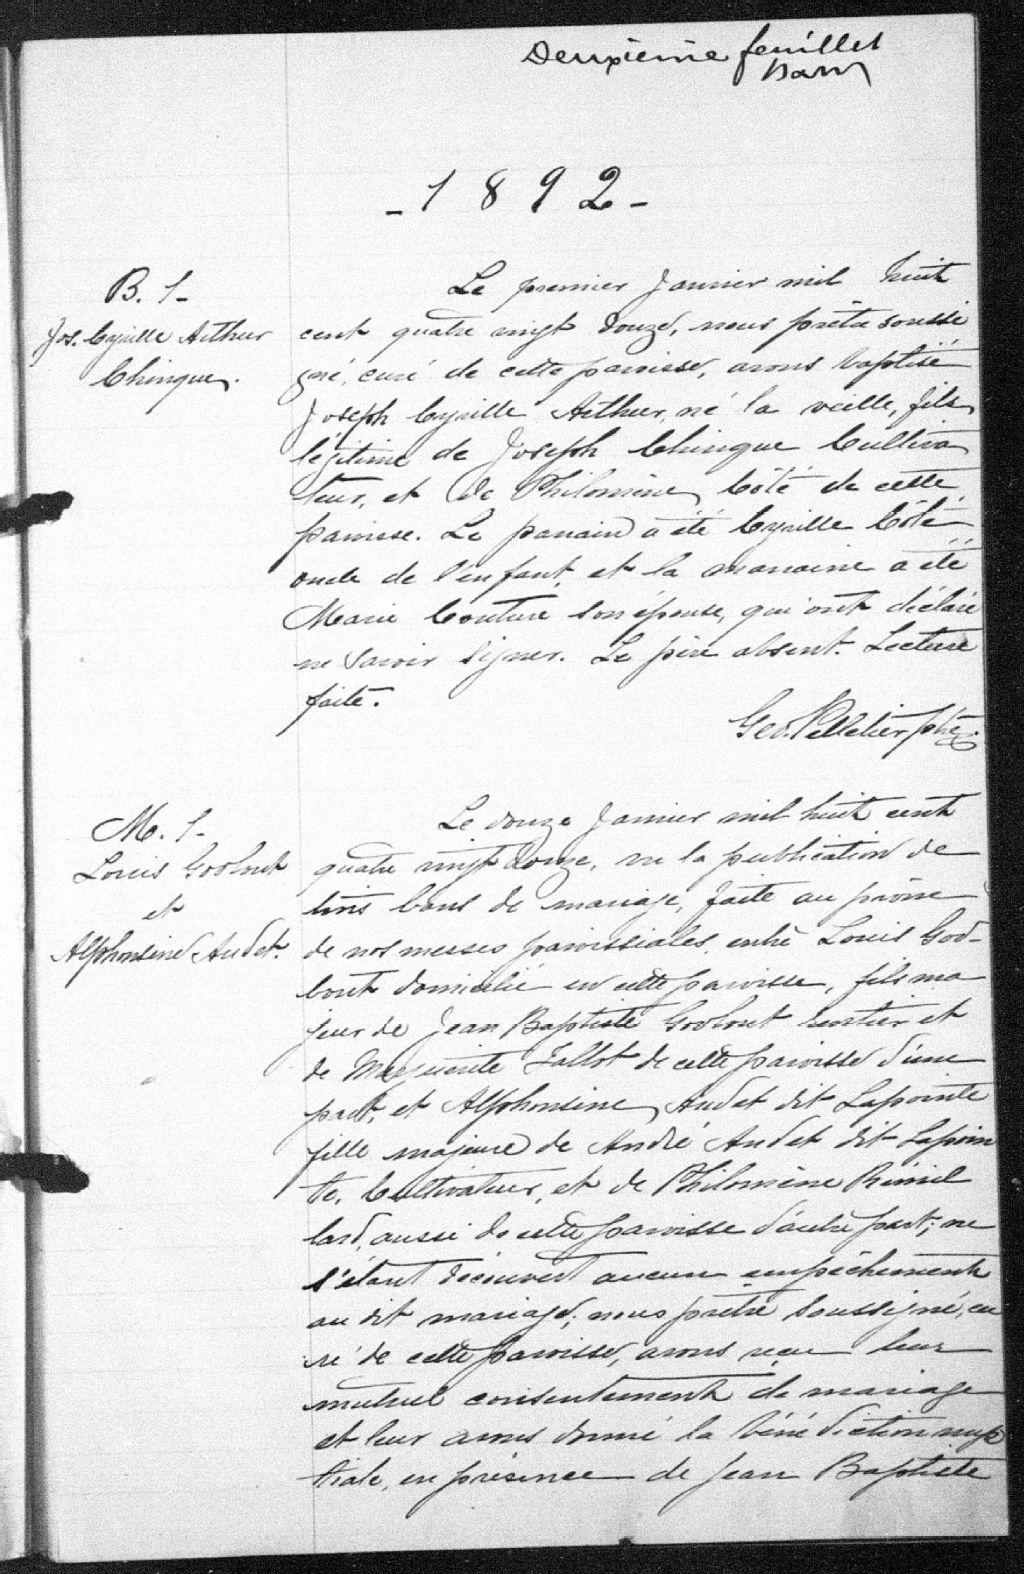 Deuxième feuillet
- 1892 -
B. 1-
Jos. Cyrille Arthur
Chinque.
Le premier Janvier mil huit
cent quatre vingt douze, nous prêtre soussi
gné, curé de cette paroisse, avons baptisé
Joseph Cyrille Arthur, né la veille, fils
légitime de Joseph Chinque Cultiva
teur, et de Philomène Côté de cette
paroisse. Le parrain a été Cyrille Côté
oncle de l'enfant, et la marraine a été
Marie Couture son épouse, qui ont déclaré
ne savoir signer. Le père absent. Lecture
faite.
Geo. Pelletier ptre
M. 1-
Louis Godbout
et
Alphonsine Audet.
Le douze Janvier mil huit cent
quatre vingt douze, vu la publication de
trois bans de mariage, faite au prône
de nos messes paroissiales entre Louis God-
bout domicilié en cette paroisse, fils ma
jeur de Jean Baptiste Godbout rentier et
de Marguerite Fallot de cette paroisse d'une
part, et Alphonsine Audet dit Lapointe
fille majeure de André Audet dit Lapoin
te, Cultivateur, et de Philomène Rémil
lard, aussi de cette paroisse d'autre part; ne
s'étant découvert aucun empêchement
au dit mariage; nous prêtre soussigné, cu
ré de cette paroisse, avons reçu leur
mutuel consentement de mariage
et leur avons donné la bénédiction nup
tiale, en présence de Jean Baptiste